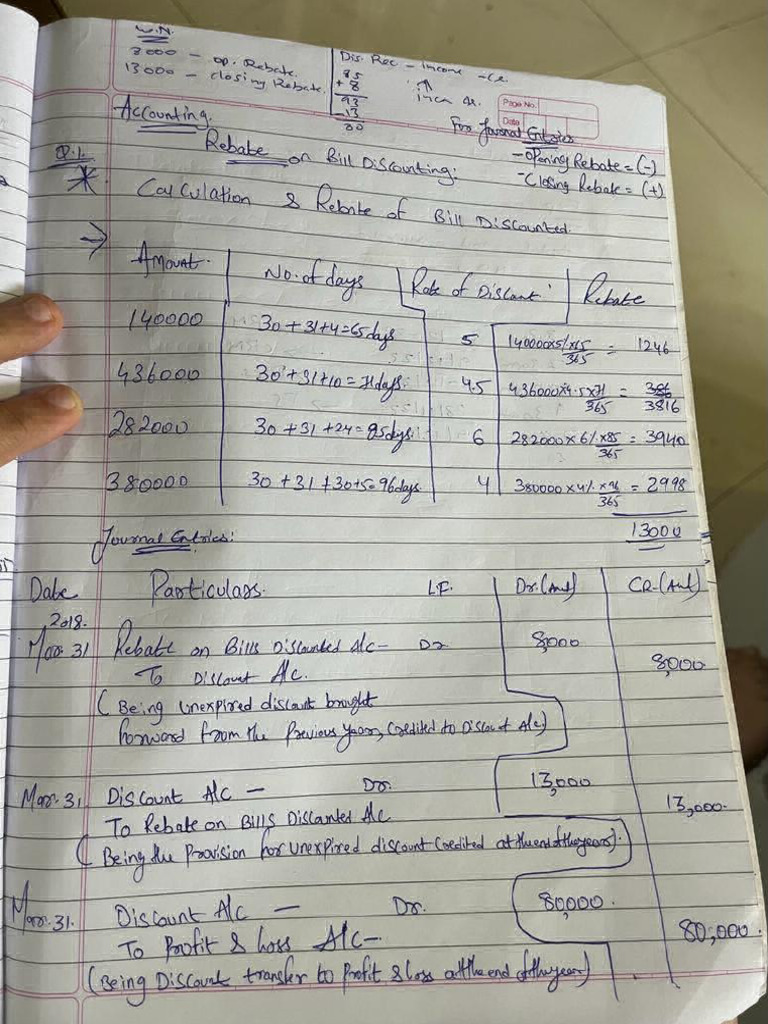 W.N.
3000 – op. Rebate.
13000 – closing Rebate.
Dis. Rec – Income – CR
85
+ 8
93
– 13
80
Page No.
Date
Accounting.
For Journal Entries
– Opening Rebate = (–)
– Closing Rebate = (+)
Q.1.
Rebate on Bill Discounting:
Calculation & Rebate of Bill Discounted.
Amount. No. of days Rate of Discount Rebate
140000 30 + 31 + 4 = 65 days 5 140000x5/x65/365 = 1246
436000 30 + 31 + 10 = 71 days. 4.5 436000x4.5x71/365 = 3816
282000 30 + 31 + 24 = 85 days. 6 282000 x 6% x 85/365 = 3940
380000 30 + 31 + 30 + 5 = 96 days. 4 380000 x 4% x 96/365 = 2998
13000
Journal Entries:
Date Particulars. L.F. Dr. (Amt) CR. (Amt)
2018.
Mar. 31 Rebate on Bills Discounted A/c – Dr 8,000
To Discount A/c. 8,000
(Being Unexpired discount brought
forward from the Previous year, Credited to Discount A/c)
Mar. 31 Discount A/c – Dr. 13,000
To Rebate on Bills Discounted A/c 13,000.
(Being the Provision for unexpired discount Credited at the end of the years).
Mar. 31. Discount A/c – Dr. 80,000.
To Profit & Loss A/c – 80,000.
(Being Discount transfer to Profit & loss at the end of the year)